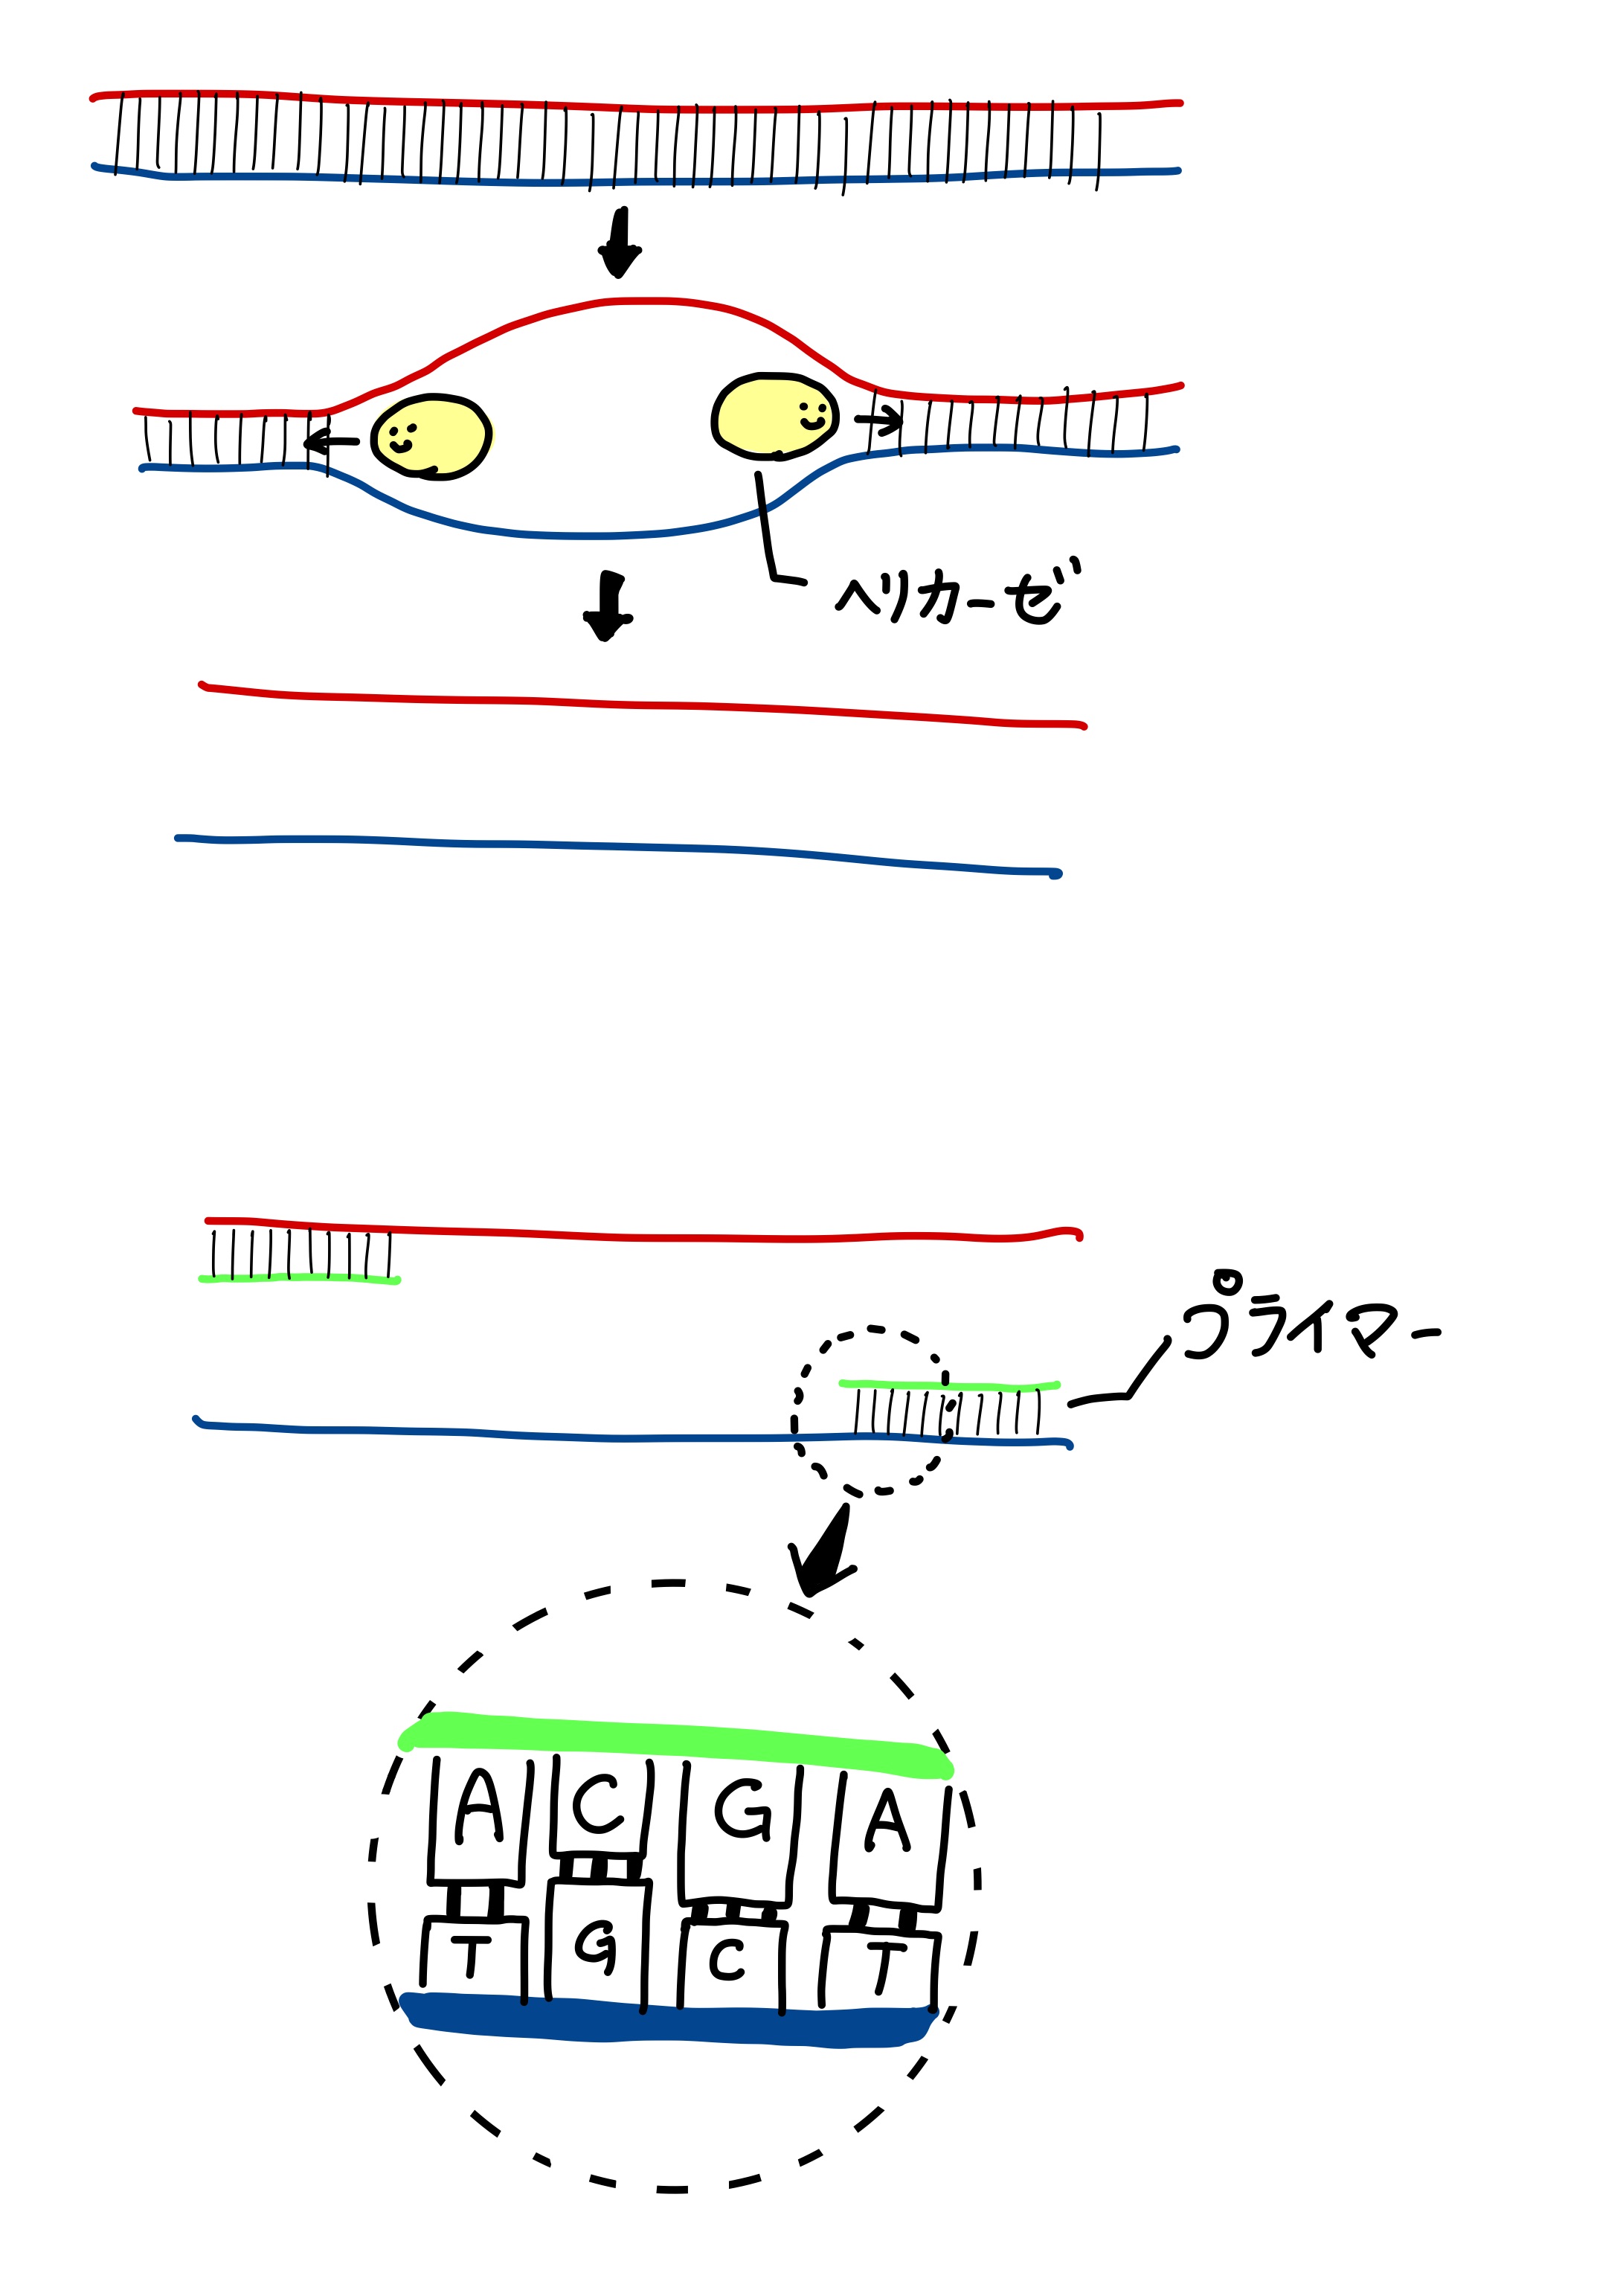 ヘリカーゼ
プライマー
A C G A
T G C T